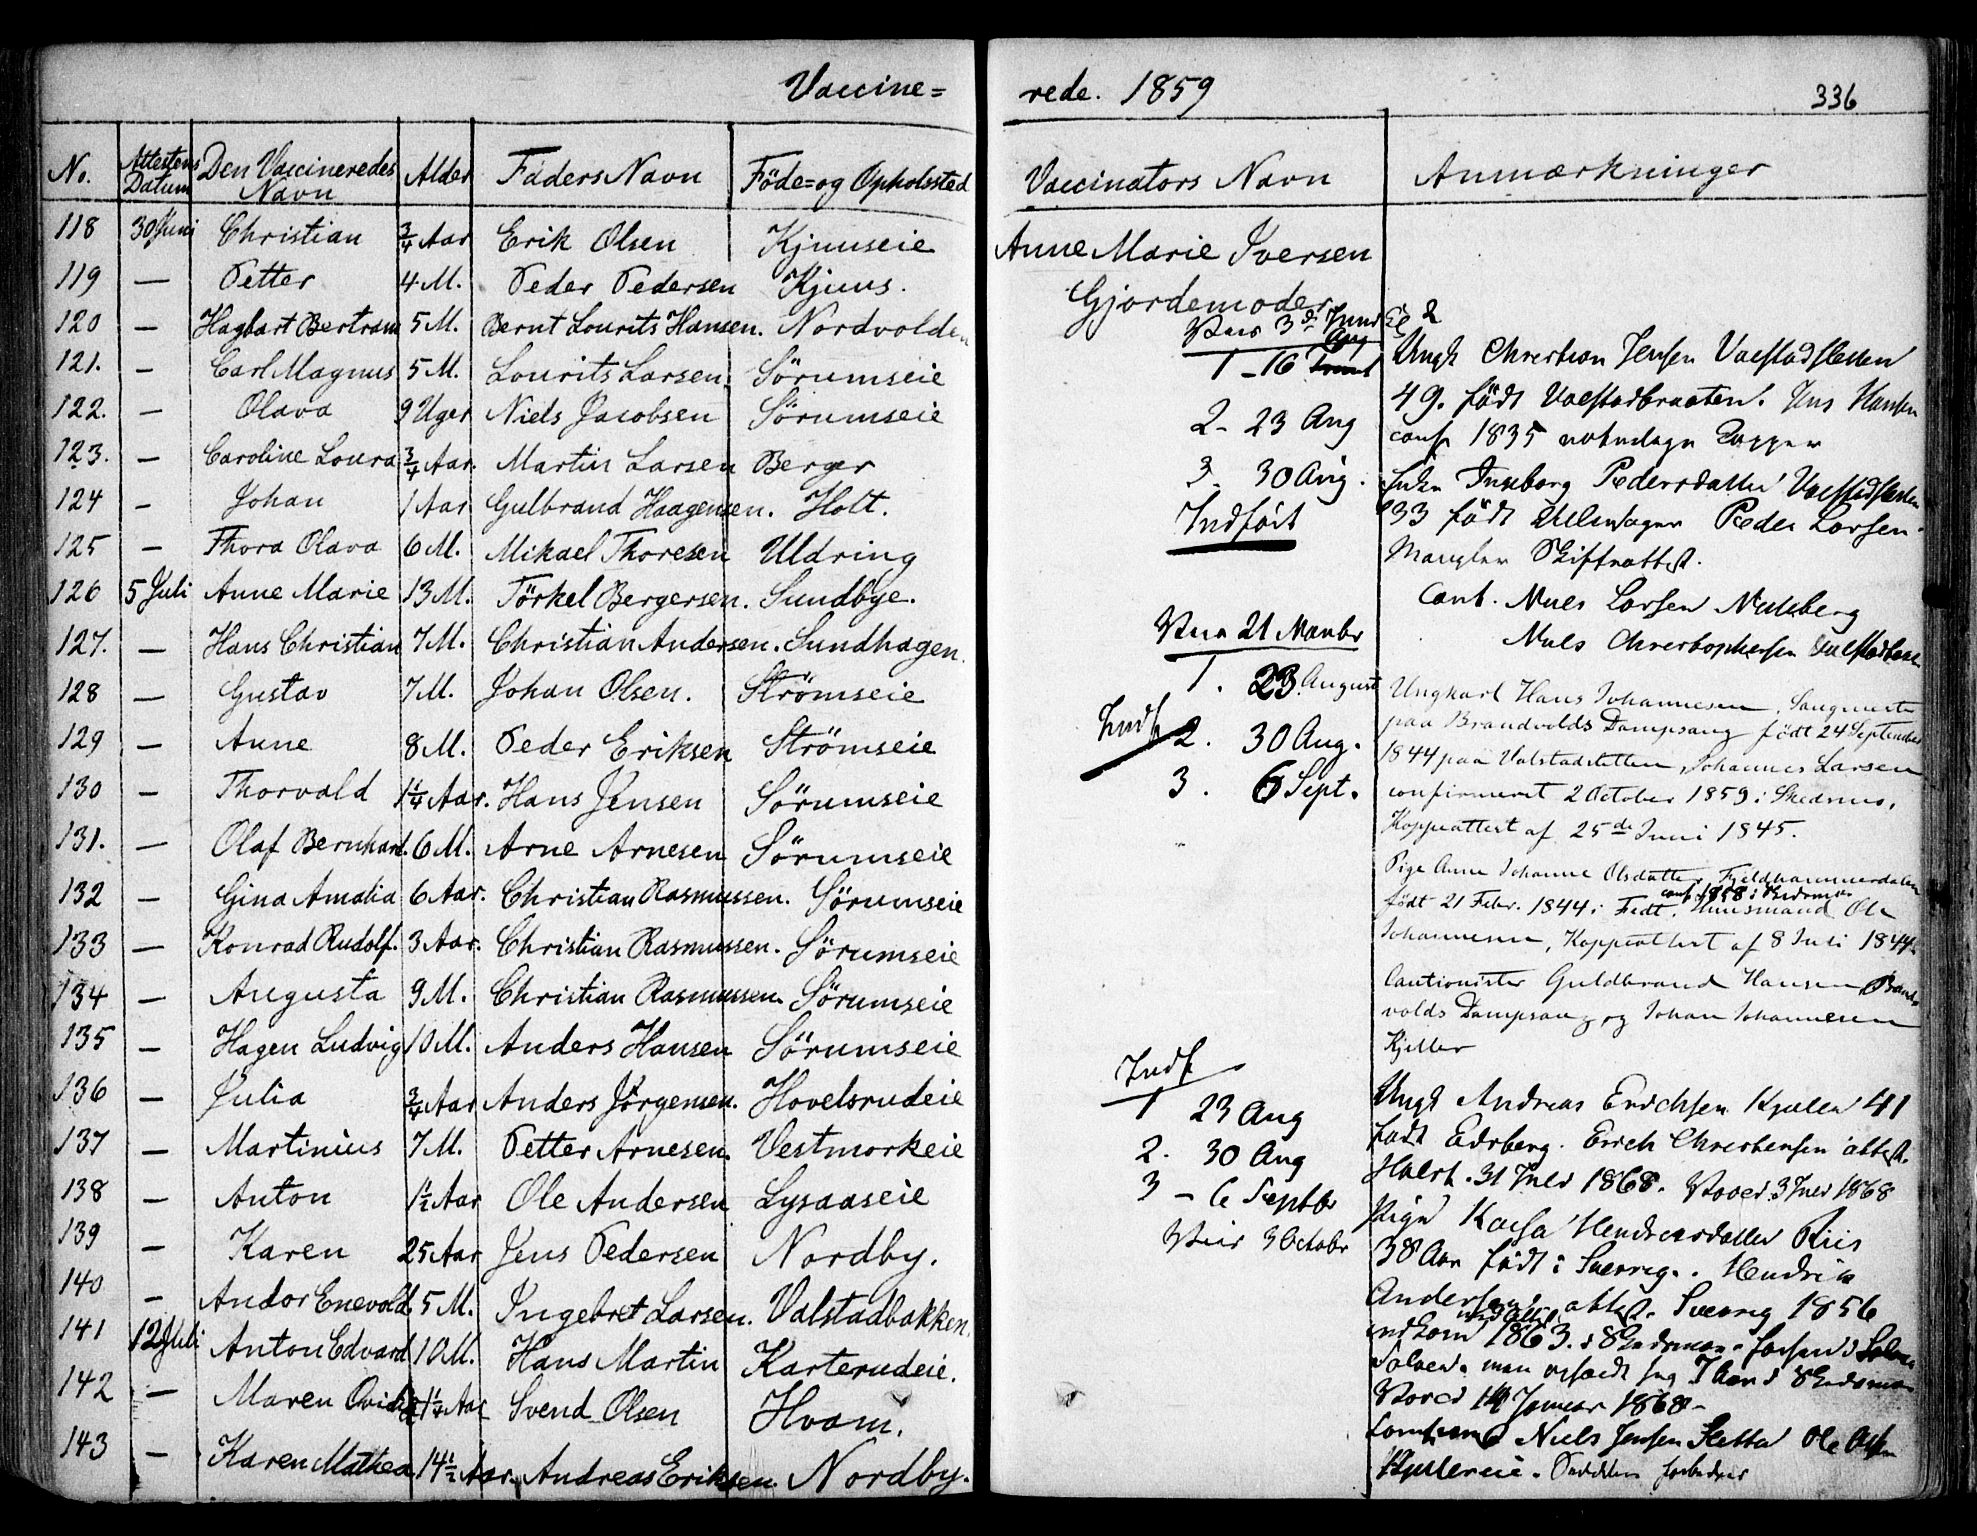 Vaccine=
No. Attestens Datum Den Vaccineredes Navn Alder Faders Navn Föde=og Opholssted
118 30 Juni Christian 3/4 Aar Erik Olsen Kjuuseie
119 — Petter 4 M. Peder Pedersen Kjuus.
120 — Hagbart Bertram 5 M. Bernt Lourits Hansen. Nordvolden
121. — Carl Magnus 5 M. Lourits Larsen Sörumseie
122. — Olava 9 Uger Niels Jacobsen Sörumseie
123. — Caroline Loura 3/4 Aar. Martin Larsen Berger
124 — Johan 1 Aar Gulbrand Haagensen. Holt.
125 — Thora Olava 6 M. Mikael Thoresen Uldring
126 5 Juli Anne Marie 13 M. Törkel Bergersen. Sundbye.
127. — Hans Christian 7 M. Christian Andersen. Sundhagen.
128 — Gustav 7 M. Johan Olsen. Strömseie
129 — Anne 8 M. Peder Eriksen Strömseie
130 — Thorvald 1 1/4 Aar. Hans Jensen Sörumseie
131. — Olaf Bernhard. 6 M. Arne Arnesen Sörumseie
132 — Gina Amalia 6 Aar. Christian Rasmussen. Sörumseie
133 — Konrad Rudolf. 3 Aar. Christian Rasmussen. Sörumseie
134 — Augusta 9 M. Christian Rasmussen. Sörumseie
135 — Hagen Ludvig 10 M. Anders Hansen Sörumseie
136 — Julia 3/4 Aar Anders Jörgensen. Hovelsrudeie
137 — Martinius 7 M. Petter Arnesen. Vestmorkeie
138 — Anton 1 1/2 Aar Ole Andersen Lysaaseie
139 — Karen 25 Aar Jens Pedersen Nordby.
140 — Andor Enevold 5 M. Ingebret Larsen. Valstadbakken.
141 12 Juli Anton Edvard 10 M. Hans Martin Karterudeie.
142 — Maren 1 1/4 Aar Svend Olsen Hvam.
143 — Karen Mathea 14 1/2 Aar. Andreas Eriksen. Nordby.
rede. 1859
336
Vaccinators Navn Anmærkninger
Anne Marie Iversen
Gjordemoder
1 - 16
2 - 23 Aug
3. 30 Aug.
Indfört
21
1. 23. August
Indf 2. 30 Aug.
3. 6 Sept.
Indf
1 23 Aug
2. 30 Aug
3 - 6 Septbr
3 Octobr
Ungk Christian Jensen
49. født Jens Hansen
conf 1835
Ingeborg Pedersdatter
33 født Peder Larsen
Mangler Skifteattest.
Caut. Niels Larsen
Niels
Ungkarl Hans Johannesen, Saugmester
paa Brandvolds Dampsaug født 24 September
1844 paa Valstadsletten, Johannes Larsen
confirmeret 2 October 1859 i Skedsmo,
Koppeattest af 25de Juni 1845.
Pige Anne Johanne Olsdatter, Fjeldhammerdalen
conf. 1858 i Skedsmo
født 21 Febr. 1844 i Fedt. Huusmand Ole
Johannesen, Koppeattest af 8 Juli 1844
Cautionister Guldbrand Hansen Brand-
volds Dampsaug og Johan Johannesen
Kjeller
Ungk Andreas Erichsen Kjeller 41
født Edsberg. Erich Christensen attest.
31 1868. 3 1868
Pige Kaisa Hendriksdatter Riis
38 Aar født i Sverrig. Hendrik
Andersen attest. Sverrig 1856
1863.
14 Januar 1868
Niels Jensen Sletta Ole